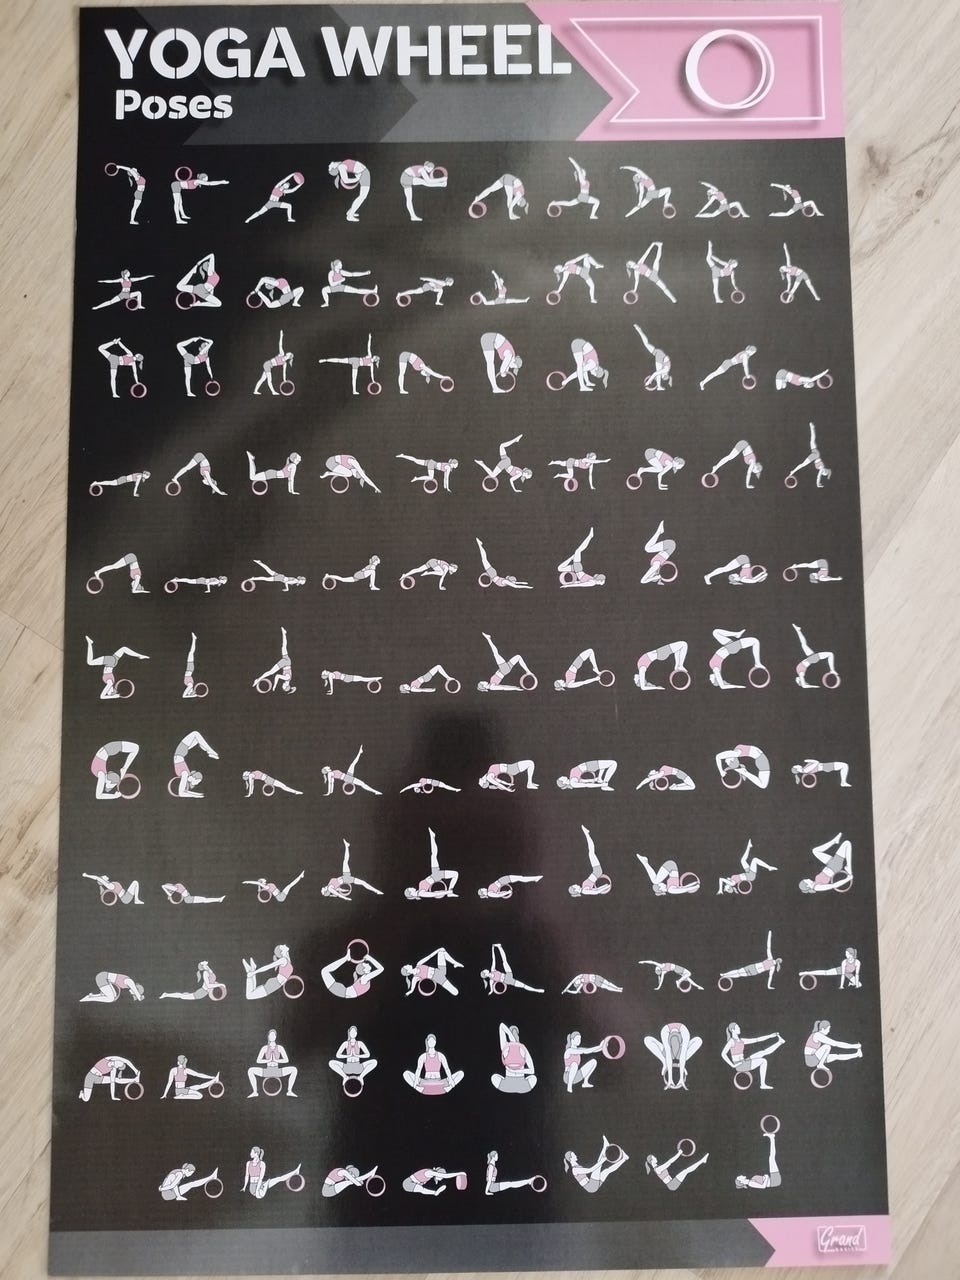 YOGA WHEEL
Poses
Grand